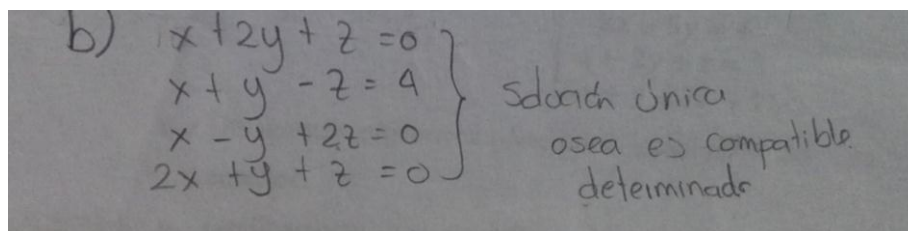 b) x + 2y + z = 0
x + y - z = 4
x - y + 2z = 0
2x + y + z = 0
Solución única
osea es compatible
determinado